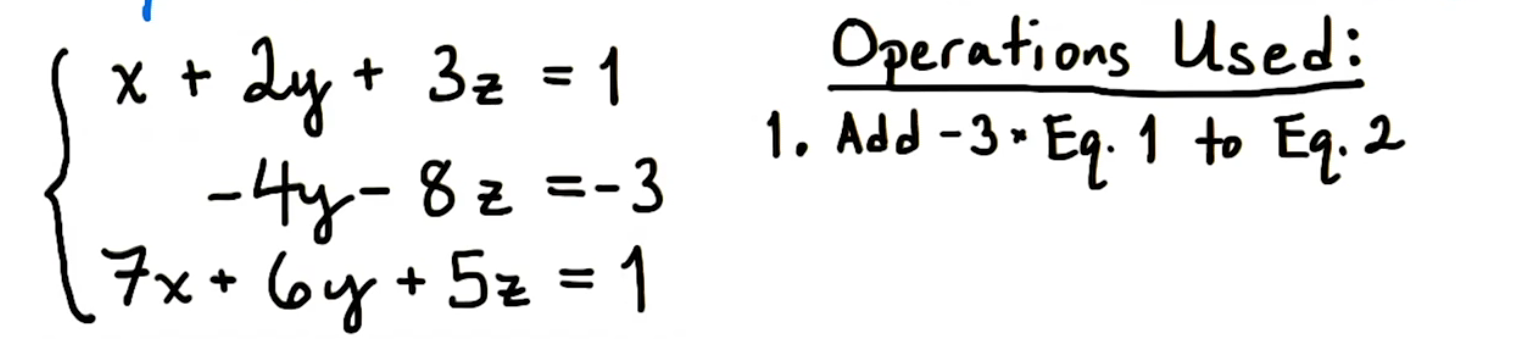 x + 2y + 3z = 1
-4y - 8z = -3
7x + 6y + 5z = 1
Operations Used:
1. Add -3 * Eq. 1 to Eq. 2